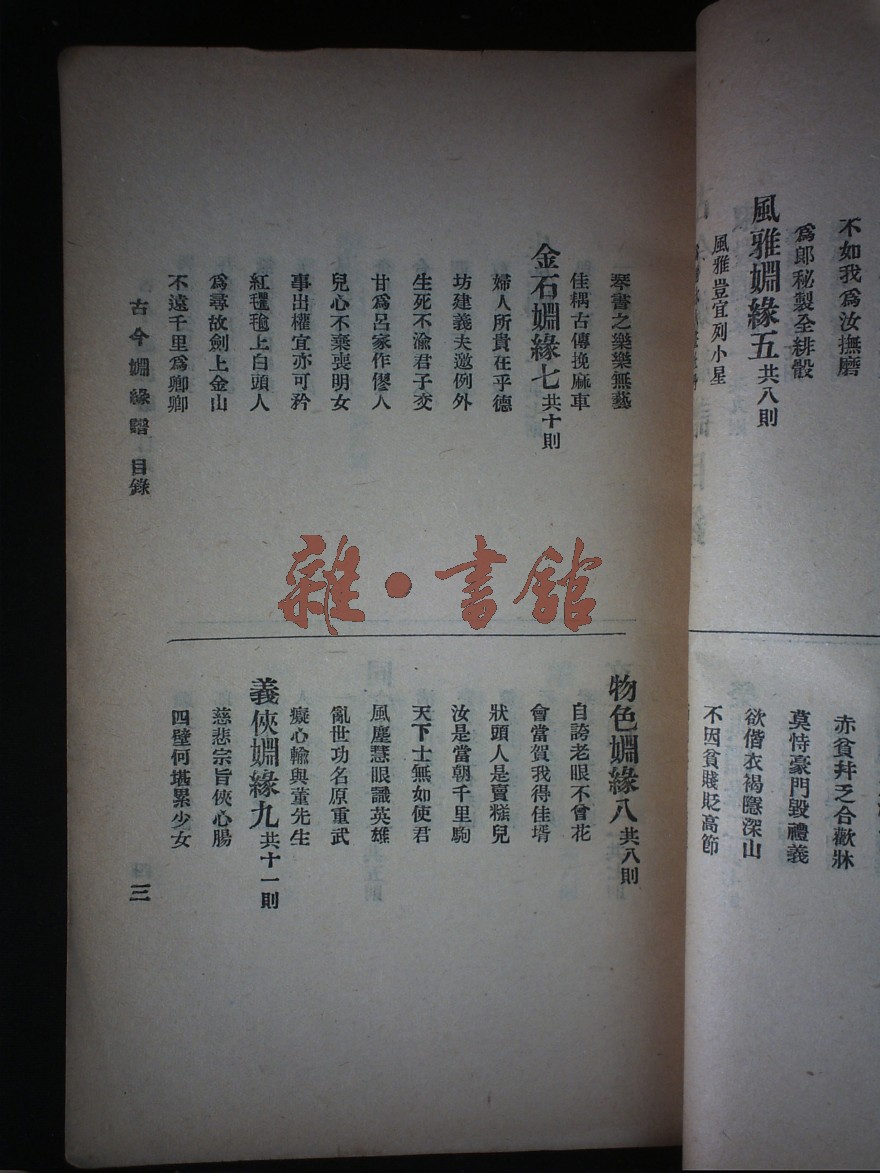 不如我爲汝撫磨
爲郞秘製全緋骰
風雅婣緣五共八則
風雅豈宜列小星
赤貧幷乏合歡牀
莫恃豪門毀禮義
欲偕衣褐隱深山
不因貧賤貶高節
琴書之樂樂無藝
佳耦古傳挽麻車
金石婣緣七共十則
婦人所貴在乎德
坊建義夫邀例外
生死不渝君子交
甘爲呂家作僇人
兒心不棄喪明女
事出權宜亦可矜
紅氍毹上白頭人
爲尋故劍上金山
不遠千里爲卿卿
物色婣緣八共八則
自誇老眼不曾花
會當賀我得佳壻
狀頭人是賣糕兒
汝是當朝千里駒
天下士無如使君
風塵慧眼識英雄
亂世功名原重武
癡心輸與董先生
義俠婣緣九共十一則
慈悲宗旨俠心腸
四壁何堪累少女
古今婣緣譜 目錄
三
雜·書館